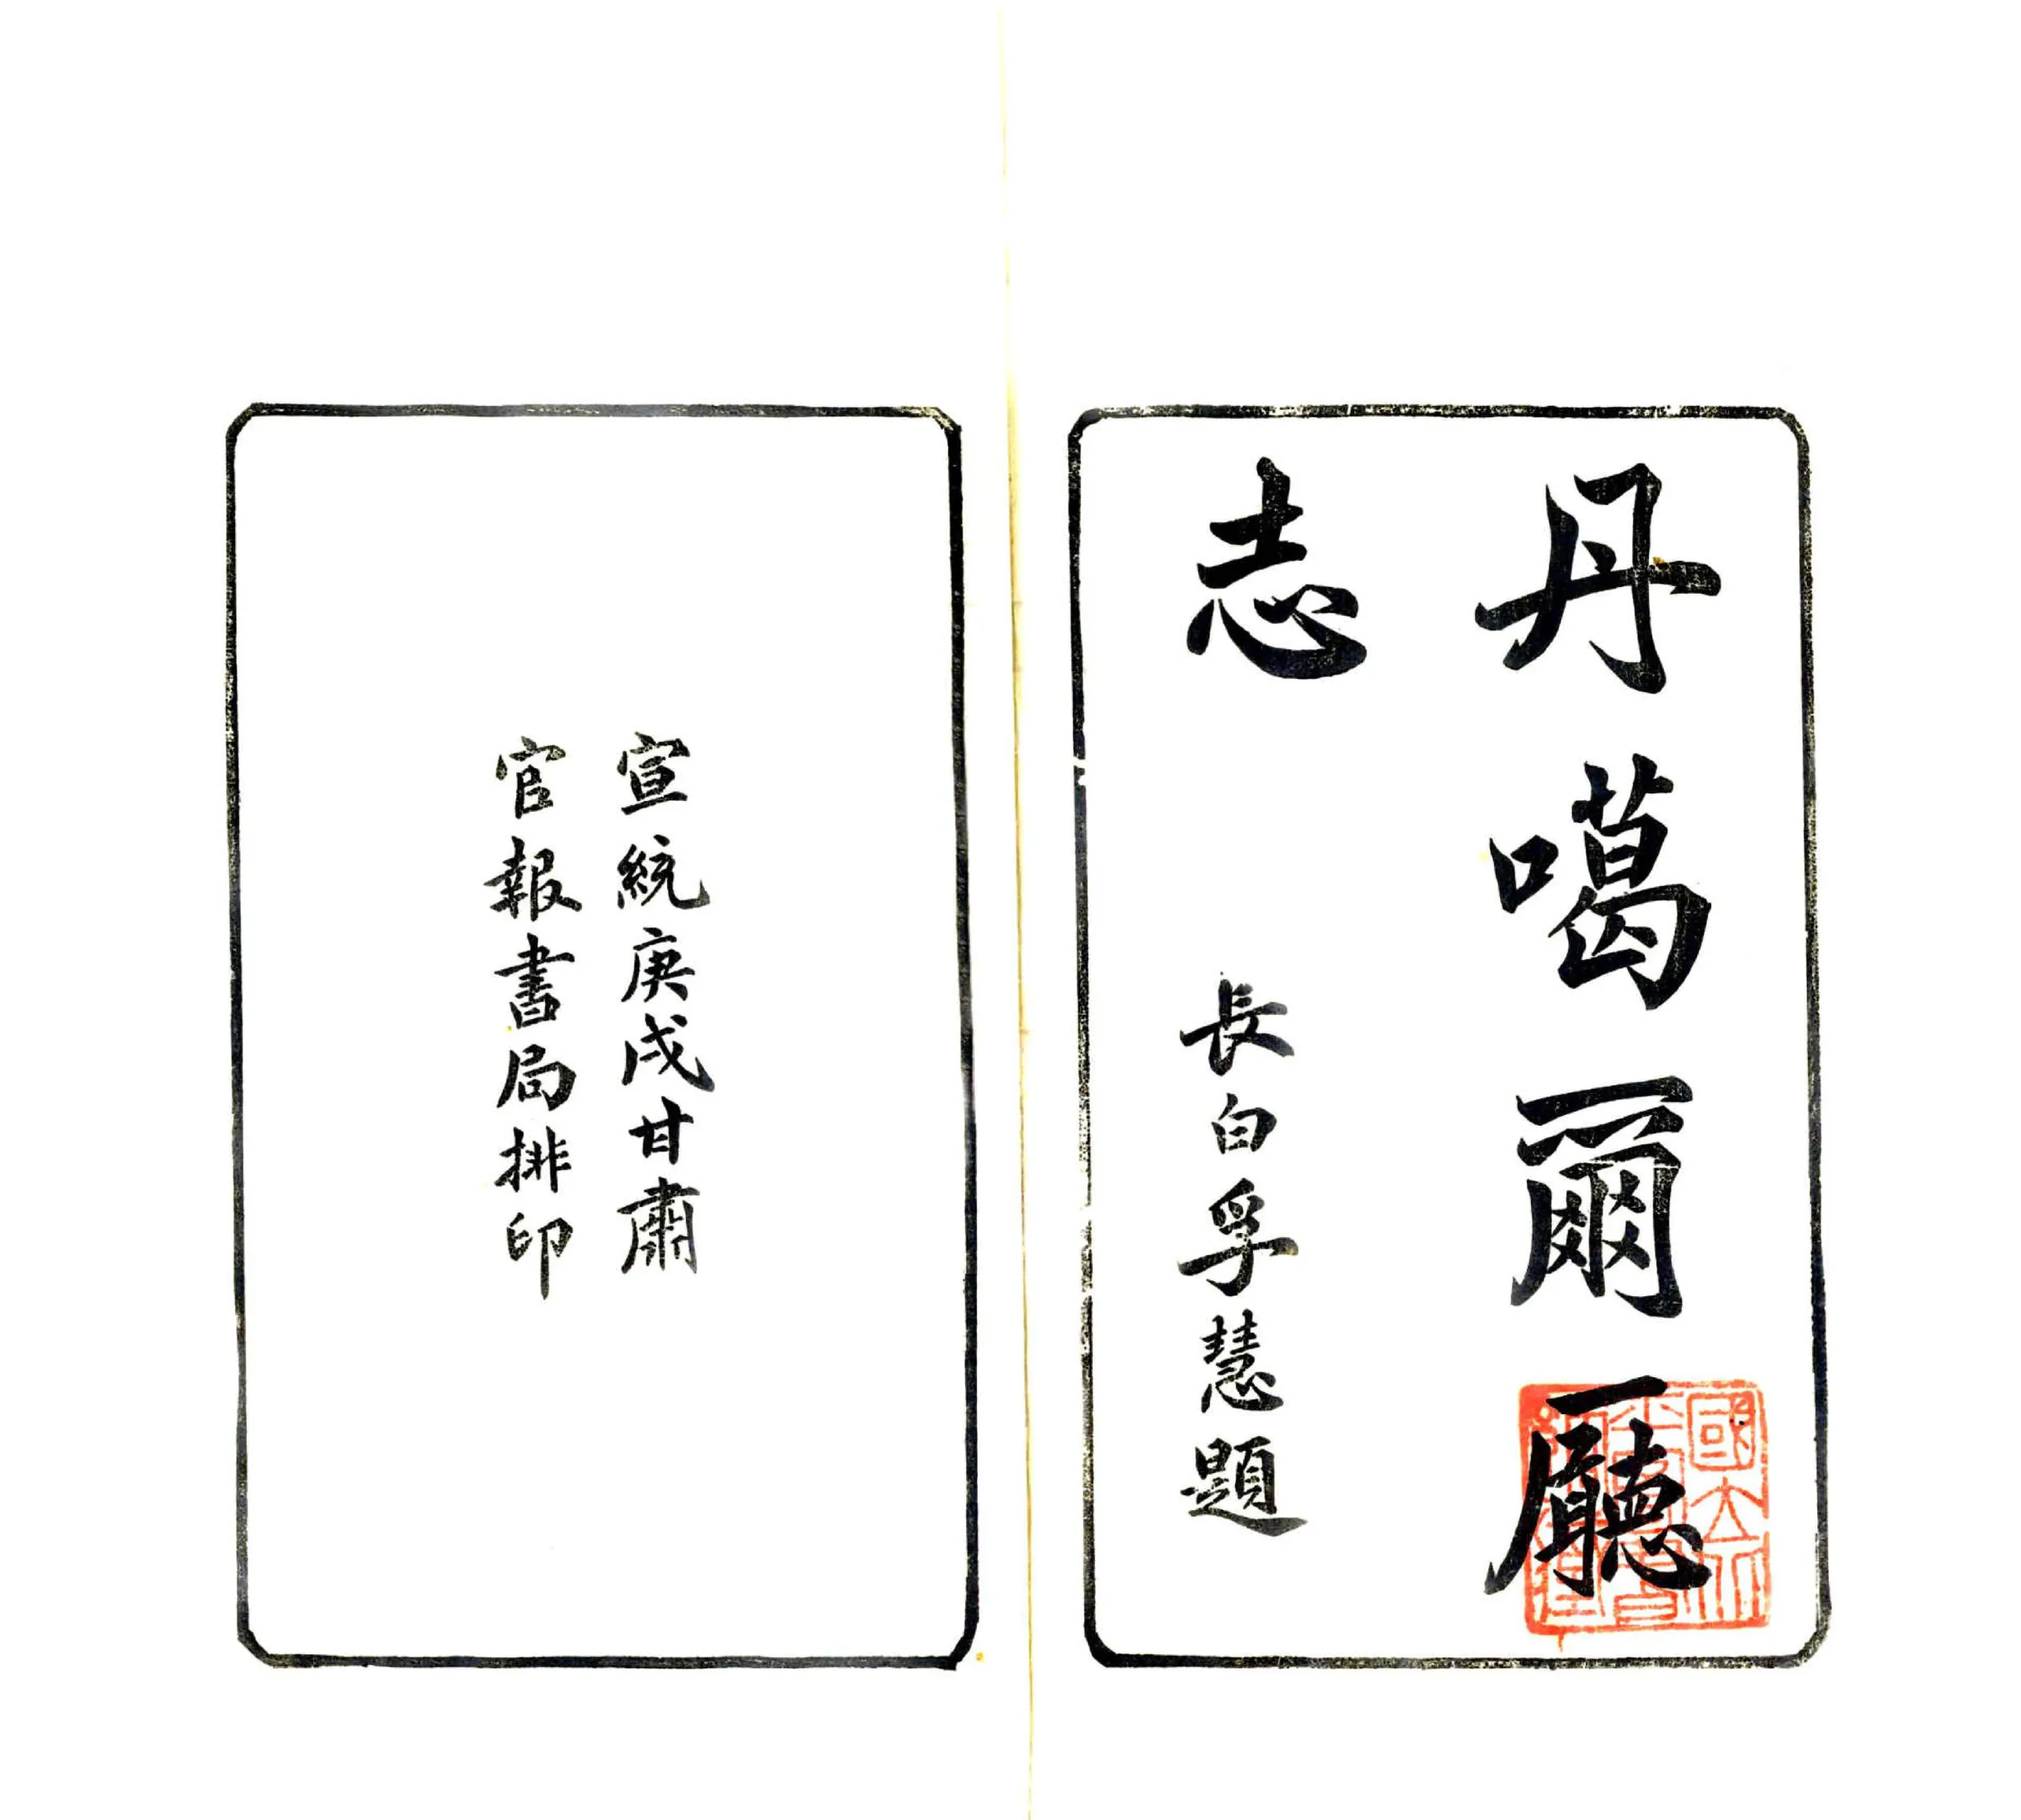 丹噶爾廳
志
長白孚慧題
宣統庚戌甘肅
官報書局排印